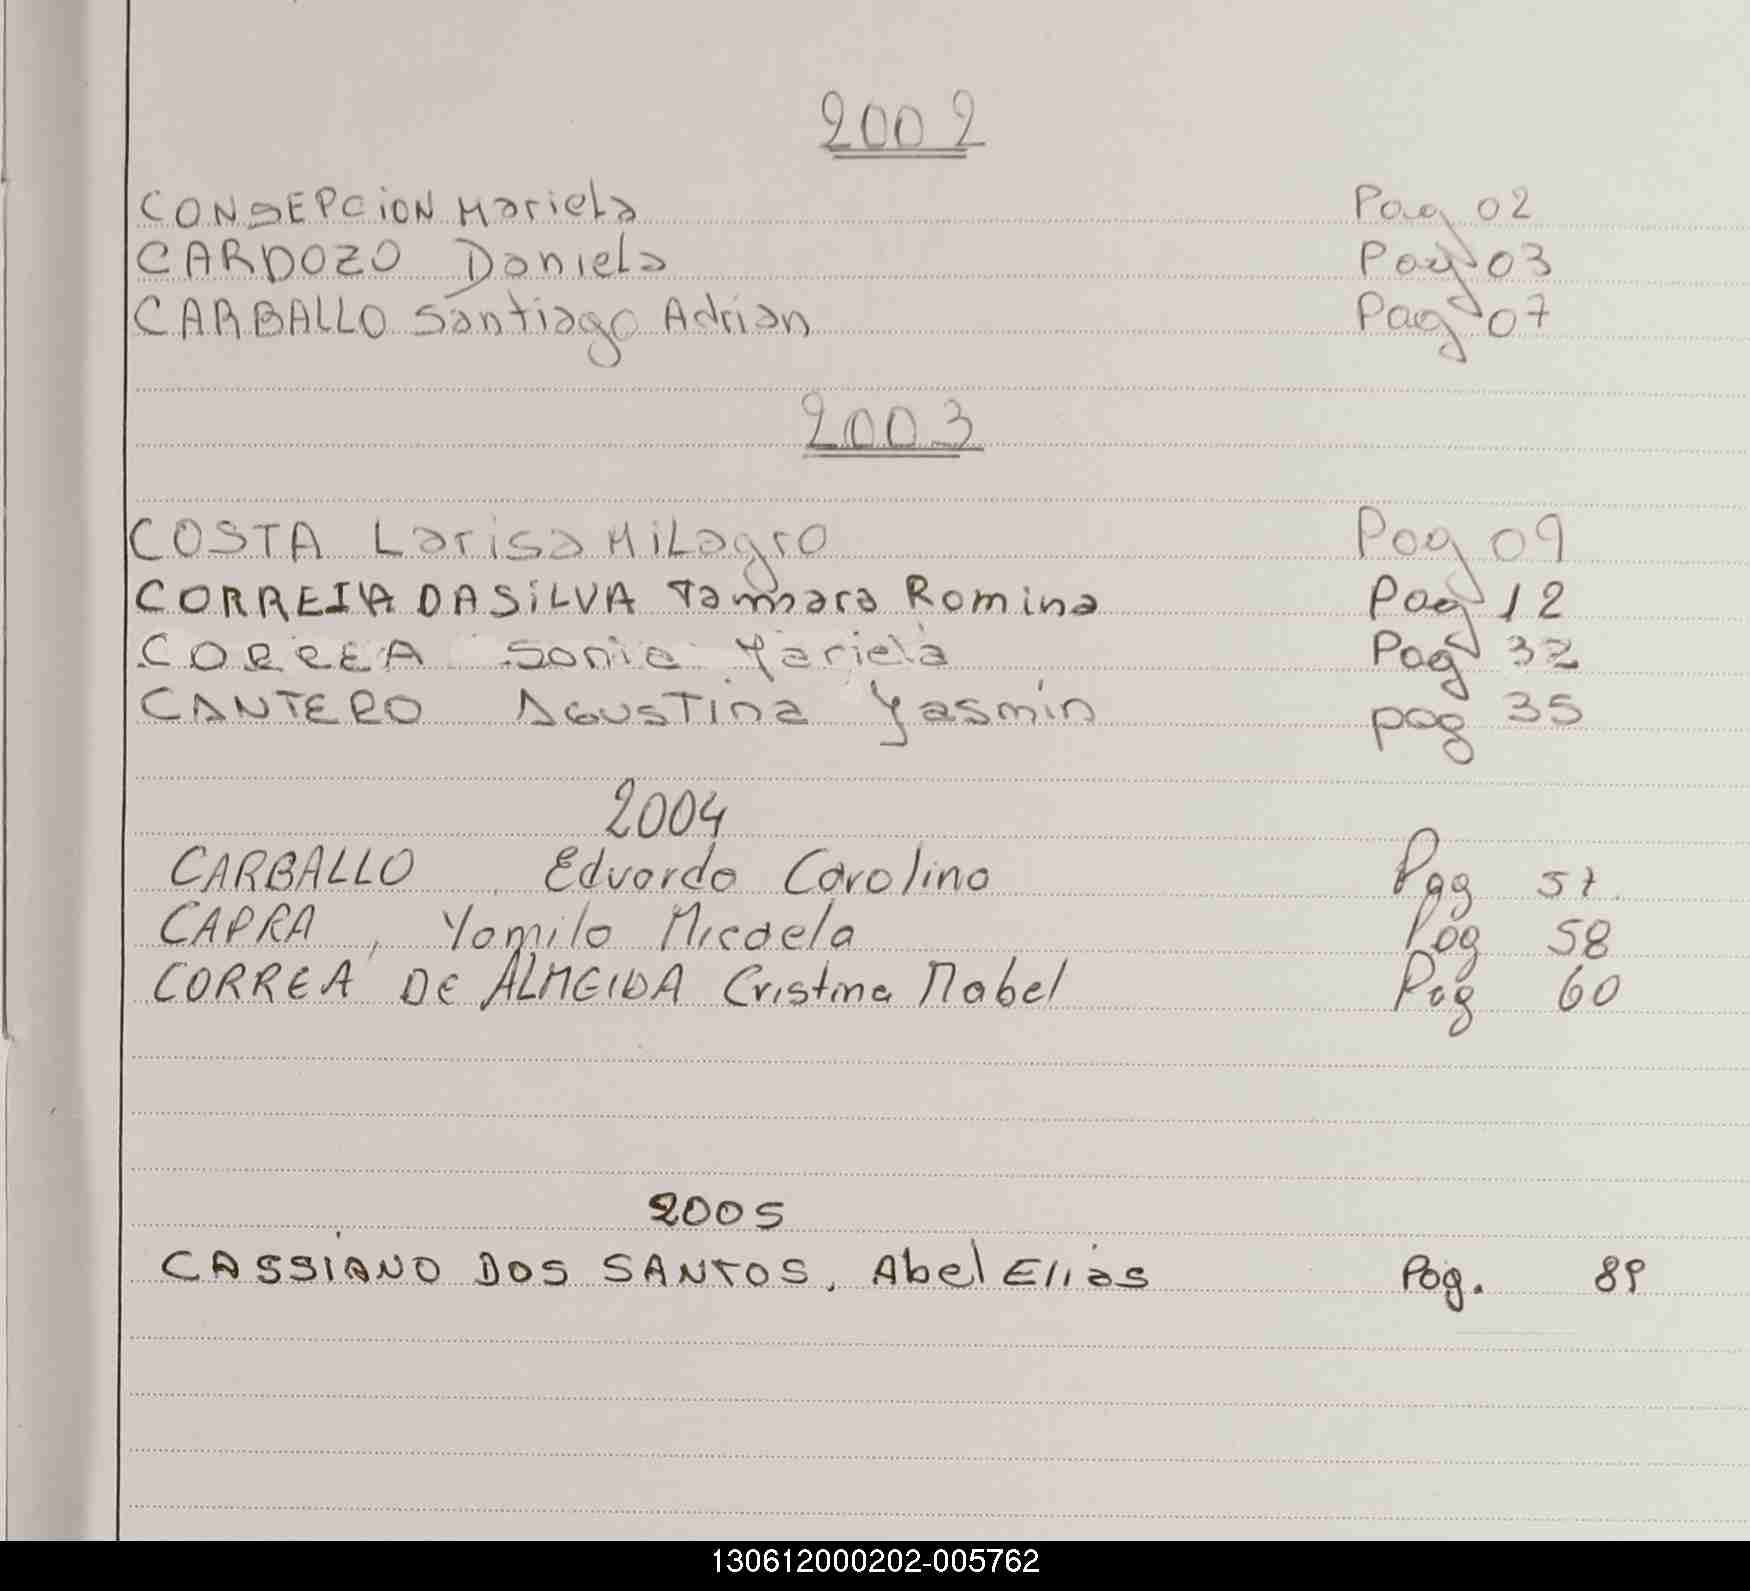 2002
CONSEPCION Mariela Pag 02
CARDOZO Daniela Pag 03
CARBALLO Santiago Adrian Pag 07
2003
COSTA Larisa Milagro Pag 09
CORREIA DA SILVA Tammara Romina Pag 12
CORREA Sonia Mariela Pag 32
CANTERO Agustina Yasmin pag 35
2004
CARBALLO Eduardo Carolino Pag 57
CAPRA, Yamila Micaela Pag 58
CORREA DE ALMEIDA Cristina Mabel Pag 60
2005
CASSIANO DOS SANTOS, Abel Elias Pag. 89
130612000202-005762